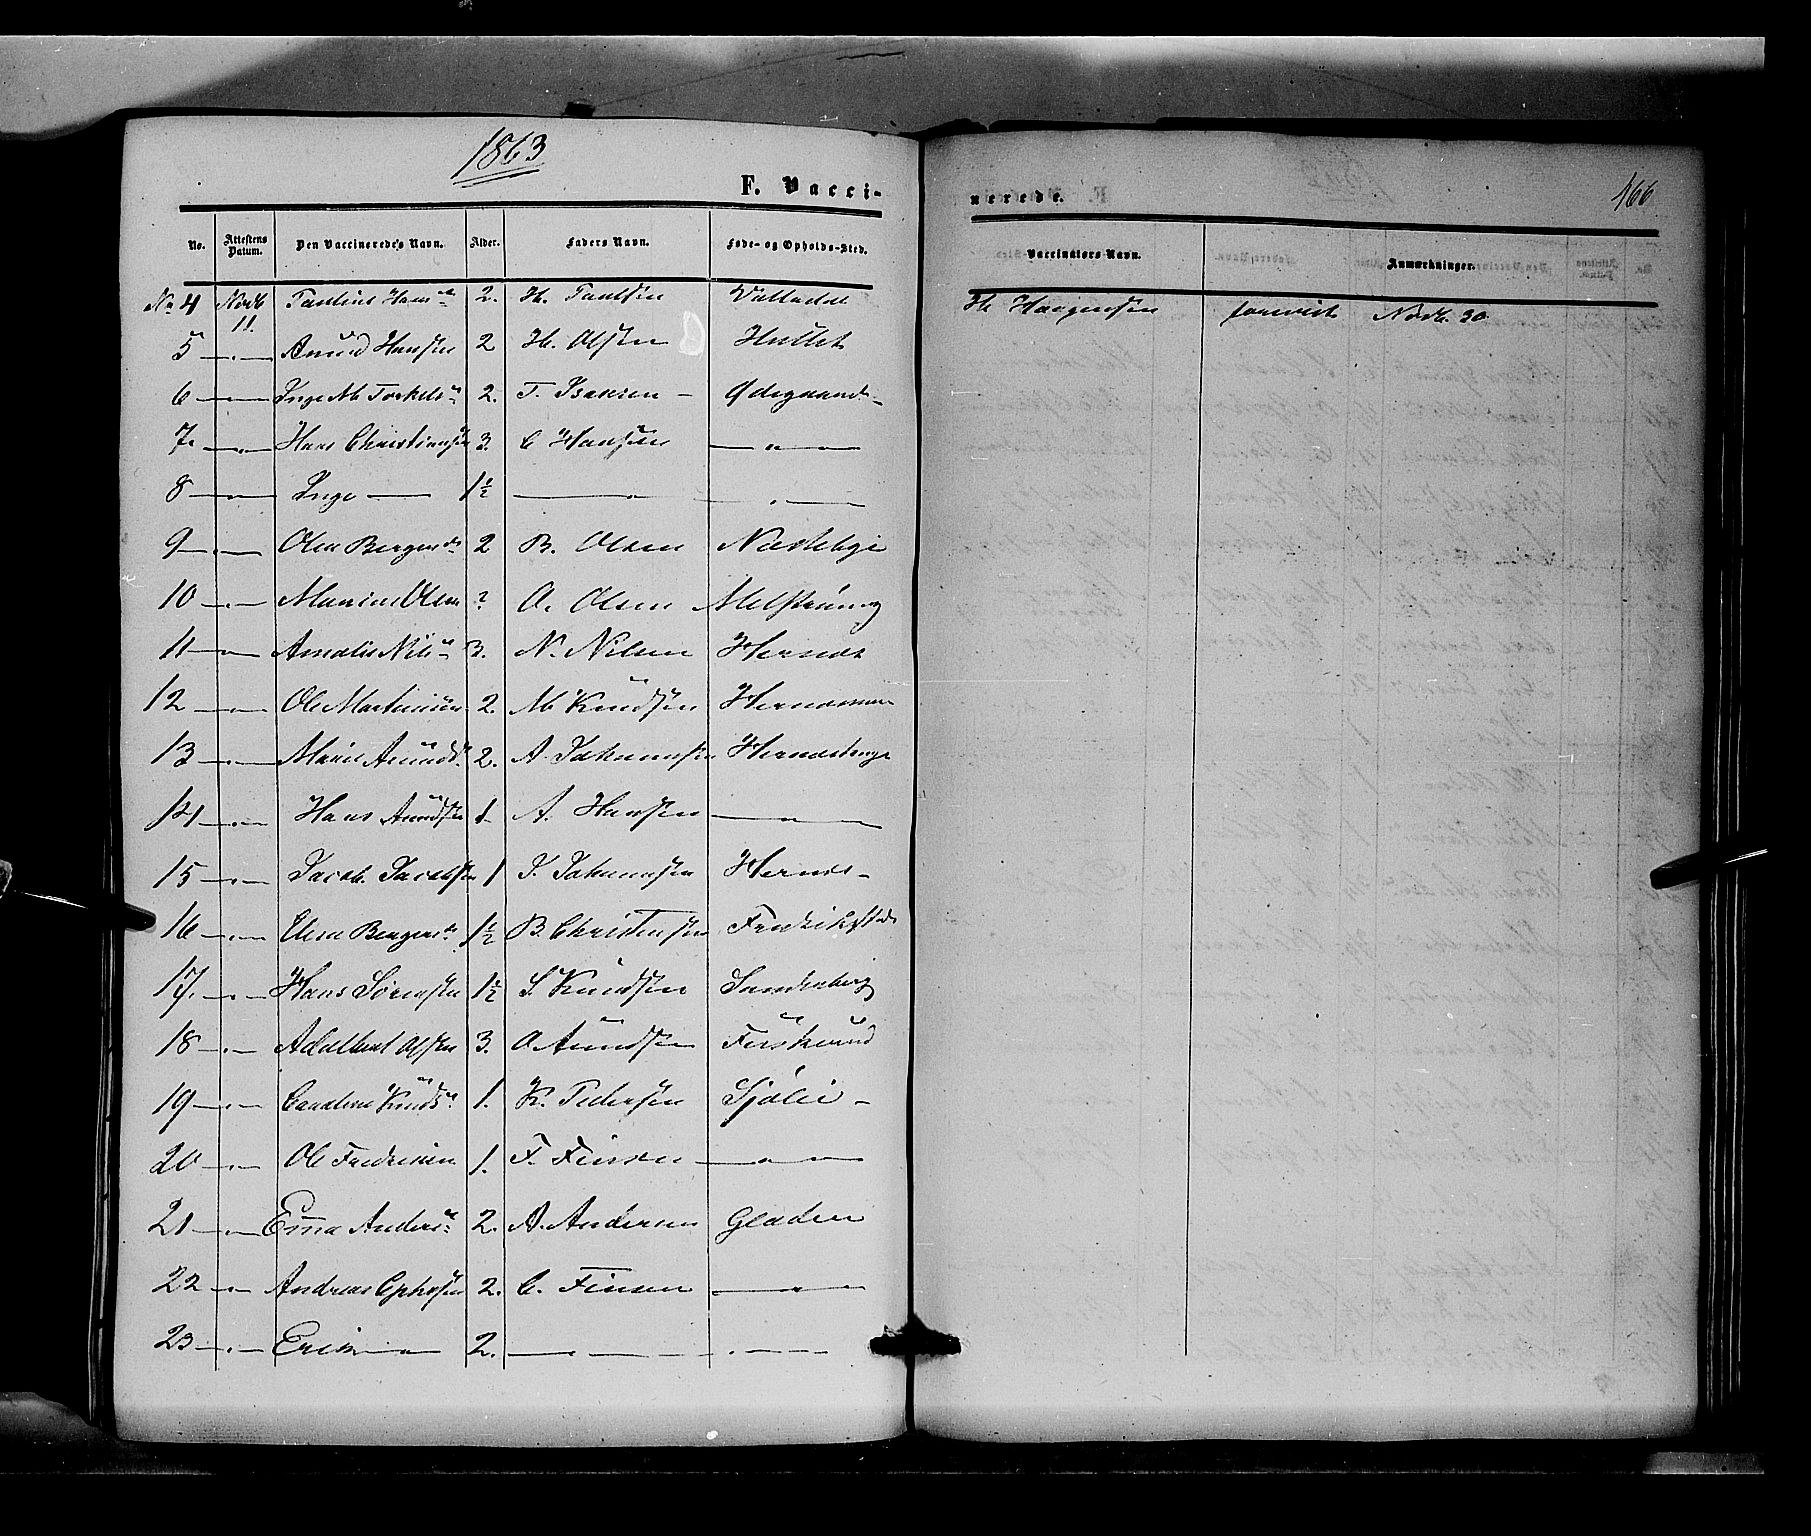 1863
F. Vacci-
No. Attestens Datum. Den Vaccineredes Navn. Alder. Faders Navn. Føde- og Opholds-Sted.
No 4 Novb 11. Pauline Hansdr 2. H. Paulsen
5 —„— Amund Hansen 2 H. Olsen Hullet
6 —„— Inge M Torkelsdr 2. T. Isaksen - Ødegaard
7 —„— Hans Christiansen 3. C Hansen —„—
8 —„— Inge —— 1½ —„— —„—
9 —„— Olea Bergersdr 2 B. Olsen Næsteby
10 —„— Marius Olsen ? O. Olsen Melstrøm
11 —„— Amalie Nilsdr 3. N. Nilsen Hernes
12 —„— Ole Martinsen 2. M Knudsen Hernesmoen
13 —„— Marie Amundsdr 2. A. Johannesen Herneshage
14 —„— Hans Amundsen 1 A. Hansen —„—
15 —„— Jacob Jacobsen 1 J. Johannesen Hernes-
16 —„— Elen Bergersdr 1½ B. Christensen Fredrikstad
17. —„— Hans Sørensen 1½ S. Knudsen Sandenberg
18 —„— Adalbert Olsen 3. O Amundsen Furukund
19 —„— Caroline Knudsdr 1. K. Pedersen Sjølie -
20 —„— Ole Fredriksen 1. F. Finsen —„—
21 —„— Emma Andersdr 2. A. Andersen Gladen
22 —„— Andreas Ophsen 2. C. Finsen —„—
23 —„— Erik —„— 2. —„— —„—
nerede.
166
Vaccinatørs Navn. Anmærkninger.
H. Haagensen foreviist Novb. 30